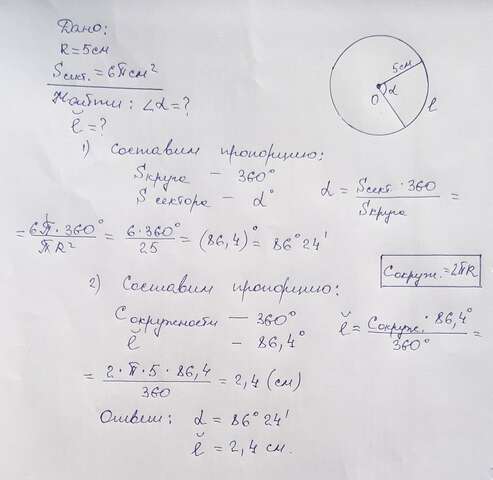 Дано:
R = 5 см
Sсект. = 6π см²
Найти: ∠α = ?
l̆ = ?
5 см
O
α
l
1) Составим пропорцию:
Sкруга — 360°
Sсектора — α°
α = Sсект · 360 / Sкруга =
= 6π · 360° / πR² = 6 · 360° / 25 = (86,4)° = 86° 24'
Cокруж. = 2πR
2) Составим пропорцию:
Cокружности — 360°
l̆ — 86,4°
l̆ = Cокруж. · 86,4° / 360° =
= 2 · π · 5 · 86,4 / 360 = 2,4 (см)
Ответ: α = 86° 24'
l̆ = 2,4 см.